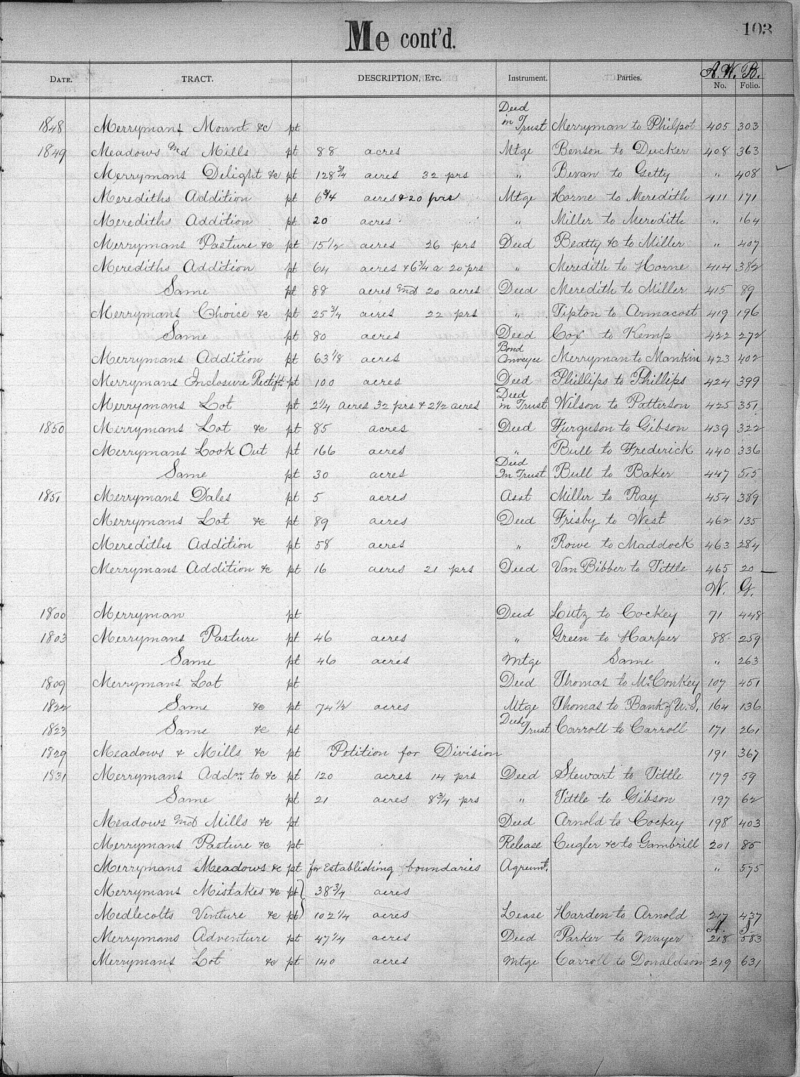 103
Me cont'd.
DATE. TRACT. DESCRIPTION, ETC. Instrument. Parties. A. W. B. No. Folio.
1848 Merrymans Mount &c pt Deed in Trust Merryman to Philpot 405 303
1849 Meadows and Mills pt 88 acres Mtge Benson to Ducker 408 363
Merrymans Delight &c pt 128 3/4 acres 32 prs " Bevan to Getty " 408
Merediths Addition pt 6 3/4 acres & 20 prs Mtge Horne to Meredith 411 171
Merediths Addition pt 20 acres " Miller to Meredith " 164
Merrymans Pasture &c pt 15 1/2 acres 26 prs Deed Beatty &c to Miller " 407
Merediths Addition pt 64 acres & 6 3/4 a 20 prs " Meredith to Horne 414 382
Same pt 88 acres and 20 acres Deed Meredith to Miller 415 89
Merrymans Choice &c pt 25 3/4 acres 22 prs " Tipton to Armacost 419 196
Same pt 80 acres Deed Cox to Kemp 422 272
Merrymans Addition pt 63 1/8 acres Bond Conveyce Merryman to Mankin 423 402
Merrymans Inclosure Rectift pt 100 acres Deed Phillips to Phillips 424 399
Merrymans Lot pt 2 1/4 acres 32 prs & 2 1/2 acres Deed in Trust Wilson to Patterson 425 351
1850 Merrymans Lot &c pt 85 acres Deed Furguson to Gibson 439 322
Merrymans Look Out pt 166 acres " Bull to Frederick 440 336
Same pt 30 acres Deed In Trust Bull to Baker 447 515
1851 Merrymans Dales pt 5 acres Asst Miller to Ray 454 389
Merrymans Lot &c pt 89 acres Deed Frisby to West 462 135
Merediths Addition pt 58 acres " Rowe to Maddock 463 284
Merrymans Addition &c pt 16 acres 21 prs Deed Van Bibber to Tittle 465 20
W. G.
1800 Merryman pt Deed Lutz to Cockey 71 448
1803 Merrymans Pasture pt 46 acres " Green to Harper 88 259
Same pt 46 acres Mtge Same " 263
1809 Merrymans Lot pt Deed Thomas to McConkey 107 451
1822 Same &c pt 74 1/2 acres Mtge Thomas to Bank of U.S. 164 136
1823 Same &c pt Deed Trust Carroll to Carroll 171 261
1829 Meadows & Mills &c pt Petition for Division 191 367
1831 Merrymans Addn to &c pt 120 acres 14 prs Deed Stewart to Tittle 179 59
Same pt 21 acres 8 3/4 prs " Tittle to Gibson 197 62
Meadows and Mills &c pt Deed Arnold to Cockey 198 403
Merrymans Pasture &c pt Release Cugler &c to Gambrill 201 85
Merrymans Meadows &c pt for Establishing boundaries Agrumt. " 575
Merrymans Mistakes &c pt 38 3/4 acres
Medlecolts Venture &c pt 102 1/4 acres Lease Harden to Arnold 217 437
A. J.
Merrymans Adventure pt 47 1/4 acres Deed Parker to Mayer 218 583
Merrymans Lot &c pt 140 acres Mtge Carroll to Donaldson 219 631